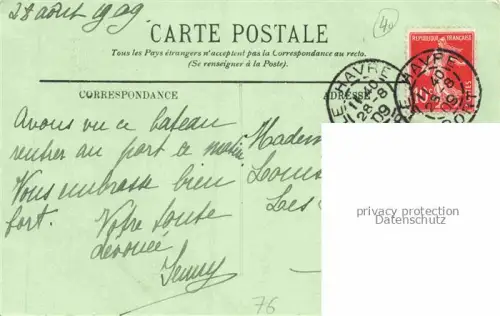 28 aout 1909.
40
CARTE POSTALE
Tous les Pays étrangers n'acceptent pas la Correspondance au recto.
(Se renseigner à la Poste).
REPUBLIQUE FRANÇAISE
LE HAVRE
11 40
28-8
09
CORRESPONDANCE
ADRESSE
Avons vu ce bateau
rentrer au port ce matin
Vous embrasse bien
fort. Votre toute
dévouée.
Jenny
Madem
Louis
Les
privacy protection
Datenschutz
76